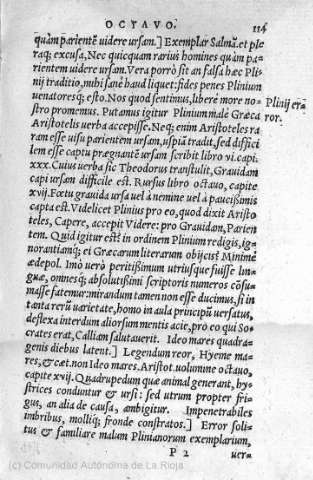 OCTAVO. 114
quàm pariente uidere ursam.] Exemplar Salmã. et ple
raq; excusa, Nec quicquam rarius homines quàm pa-
rientem uidere ursam. Vera porrò sit an falsa hæc Pli-
nij traditio, mihi sanè haud liquet: fides penes Plinium
uenatoresq; esto. Nos quod sentimus, liberè more no-
stro promemus. Putamus igitur Plinium malè Græca
Aristotelis uerba accepisse. Neq; enim Aristoteles ra
ram esse uisu parientem ursam, uspiã tradit, sed difficí
lem esse captu prægnantē ursam scribit libro vi. capi.
xxx. Cuius uerba sic Theodorus transtulit, Grauidam
capi ursam difficile est. Rursus libro octauo, capite
xvij. Foetu grauida ursa uel à nemine uel à paucissimis
capta est. Videlicet Plinius pro eo, quod dixit Aristo
teles, Capere, accepit Videre: pro Grauidam, Parien
tem. Quid igitur est? in ordinem Plinium redigis, ig-
norantiamq; ei Græcarum literarum obijcis? Minimè
ædepol. Imò uerò peritissimum utriusque fuisse lin-
guæ, omnesq; absolutissimi scriptoris numeros cõsu-
masse fatemur: mirandum tamen non esse ducimus, si in
tanta rerũ uarietate, homo in aula principũ uersatus,
deflexa interdum aliorsum mentis acie, pro eo qui So-
crates erat, Calliam salutauerit. Ideo mares quadra-
genis diebus latent.] Legendum reor, Hyeme ma-
res, & cæt. non Ideo mares. Aristot. uolumine octauo,
capite xvij. Quadrupedum quæ animal generant, hy-
strices conduntur & ursi: sed utrum propter fri-
gus, an alia de causa, ambigitur. Impenetrabiles
imbribus, molliq; fronde constratos.] Error soli-
tus & familiare malum Plinianorum exemplarium,
P 2 uer-
Plinij er-
ror.
(c) Comunidad Autónoma de La Rioja